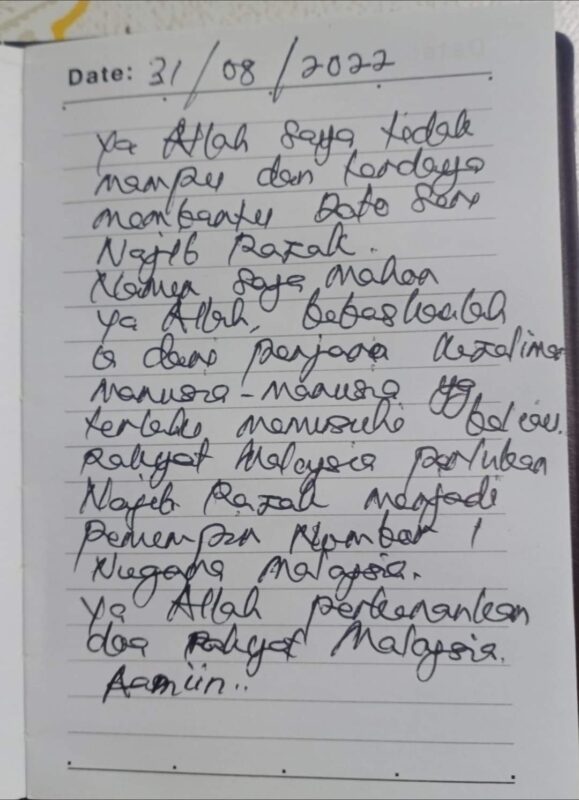 Date: 31/08/2022
Ya Allah saya tidak
mampu dan terdaya
membantu Dato Seri
Najib Razak.
Namun saya mohon
Ya Allah, bebaskanlah
ia dari penjara kezaliman
manusia-manusia yg
terlalu memusuhi beliau.
Rakyat Malaysia perlukan
Najib Razak menjadi
Pemempin Nombor 1
Nugara Malaysia.
Ya Allah perkenankan
doa rakyat Malaysia.
Aamiin..